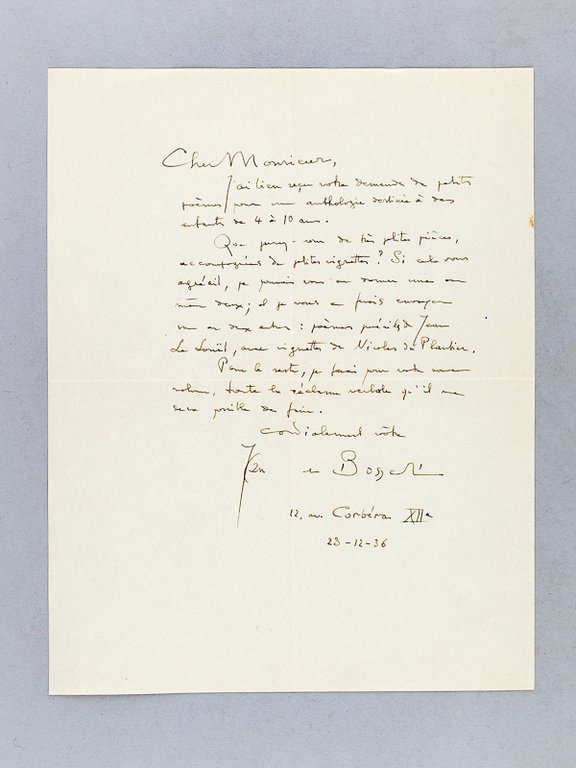 Cher Monsieur,
J'ai bien reçu votre demande de petits
poèmes pour une anthologie destinée à des
enfants de 4 à 10 ans.
Que pensez-vous de très petites pièces,
accompagnées de petites vignettes ? Si cela vous
agréait, je pourrais vous en donner une ou
même deux ; et je vous en ferais envoyer
une ou deux autres : poèmes de Jean
Le Louët, avec vignettes de Nicolas de
Pour le reste, je ferai pour votre
volume, toute la réclame verbale qu'il me
sera possible de faire.
Cordialement vôtre
Jean
12, av. Corbéra XIIe
23-12-36